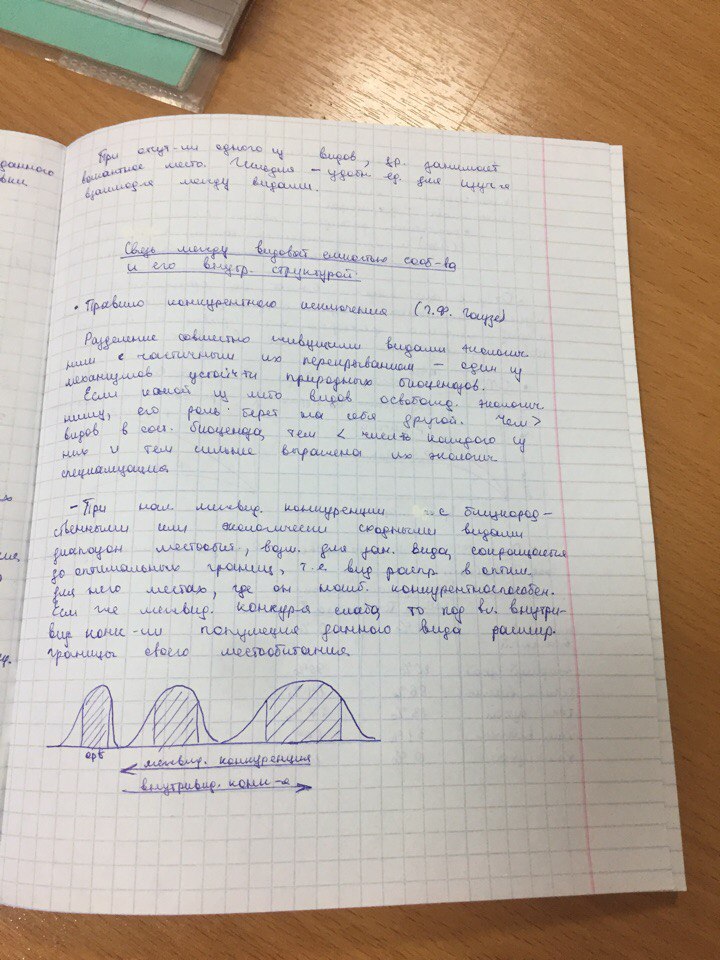 данного
При отсут-ии одного из видов, др. занимает
вакантное место. Гильдия – удобн. ед. для изуч-я
взаимод-я между видами.
Связь между видовой емкостью сооб-ва
и его внутр. структурой.
• Правило конкурентного исключения (Г.Ф. Гаузе)
Разделение совместно живущими видами экологич.
ниш с частичным их перекрыванием – один из
механизмов устойч-ти природных биоценозов.
Если какой из либо видов освобожд. экологич.
нишу, его роль берет на себя другой. Чем >
видов в сост. биоценоза, тем < числ-ть каждого из
них и тем сильнее выражена их экологич
специализация
– При нал. межвид. конкуренции с близкород-
ственными или экологически сходными видами
диапазон местообит., возм. для дан. вида, сокращается
до оптимальных границ, т.е вид распр. в оптим.
для него местах, где он наиб. конкурентноспособен.
Если же межвид. конкур-я слаба, то под вл. внутри-
вид конк-ии популяция данного вида расшир.
границы своего местообитания
opt
межвид. конкуренция
внутривид. конк-я